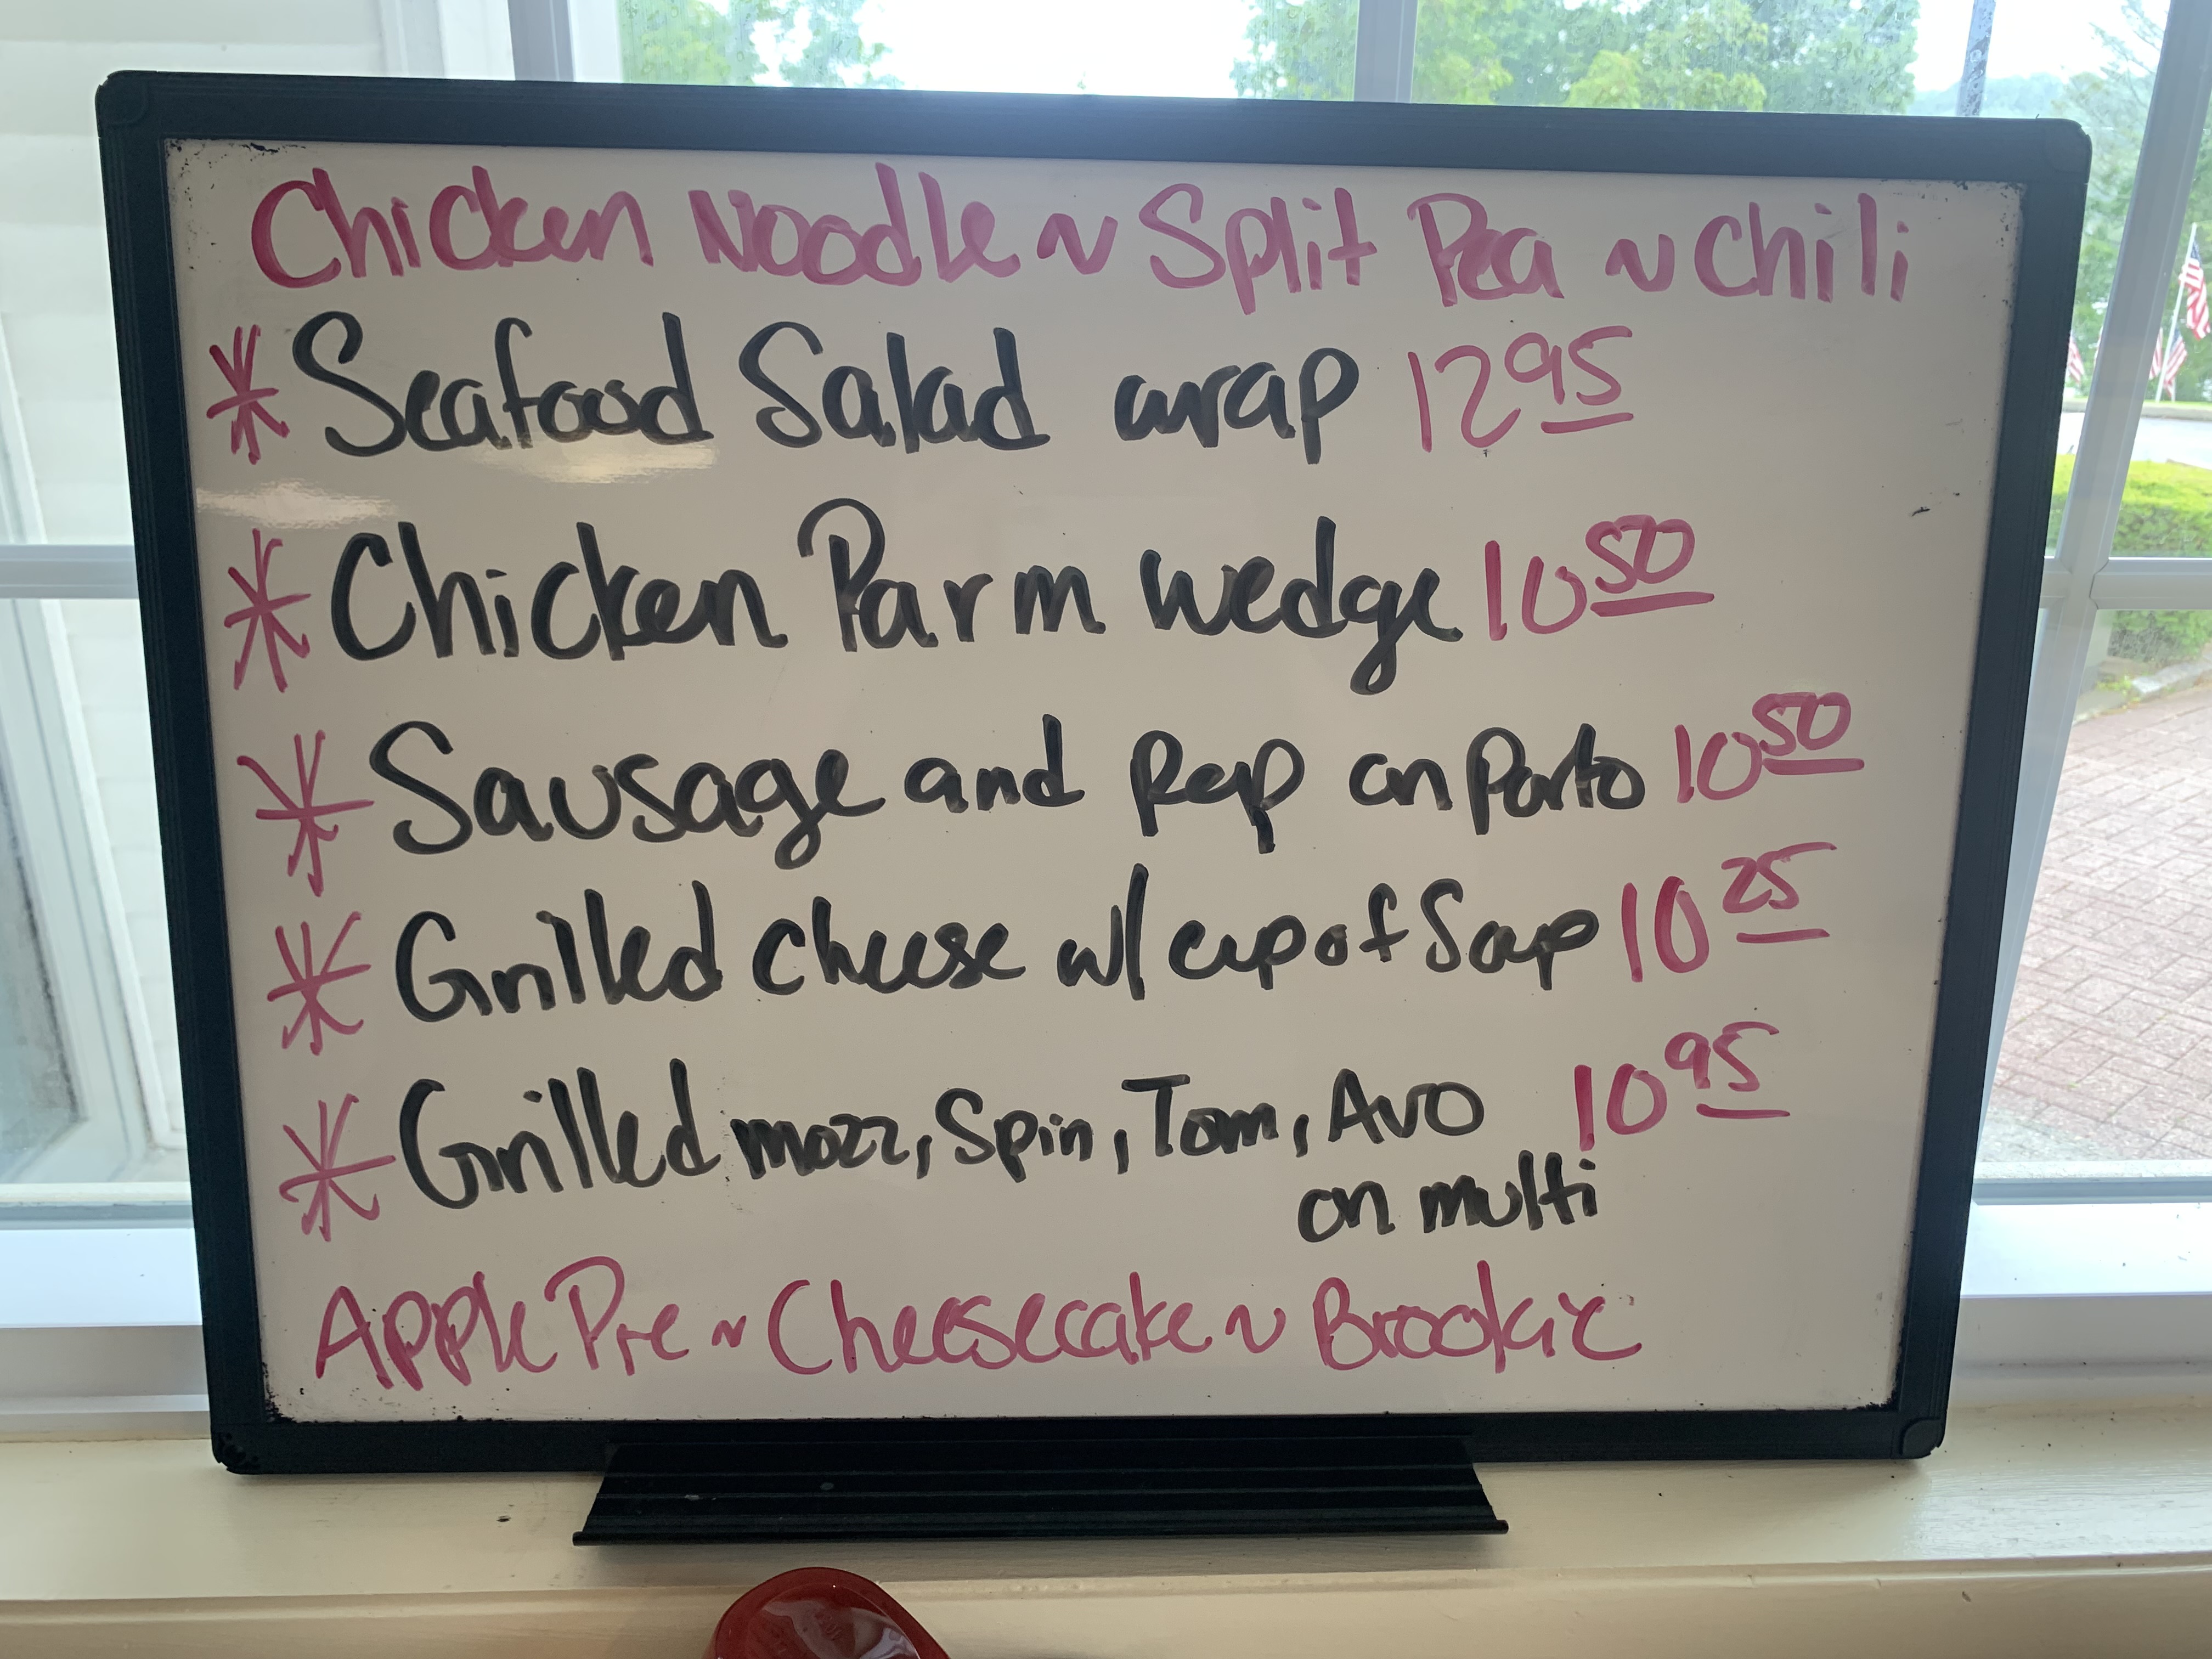 Chicken Noodle ~ Split Pea ~ Chili
* Seafood Salad wrap 12 95
* Chicken Parm wedge 10 50
* Sausage and Pep on Porto 10 50
* Grilled Cheese w/ cup of Soup 10 25
* Grilled mozz, Spin, Tom, Avo 10 95
on multi
Apple Pie ~ Cheesecake ~ Brookie